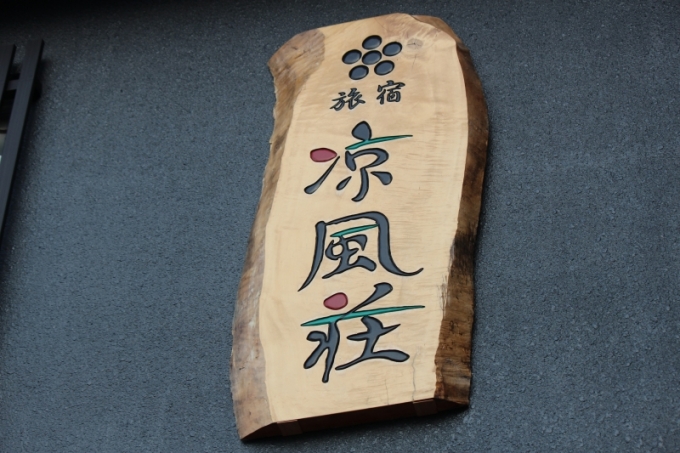 旅宿
凉風荘